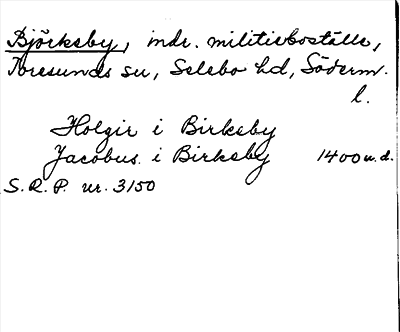 Björkeby, indr. militieboställe,
Toresunds sn, Selebo hd, Söderm.
l.
Holgir i Birkeby
Jacobus i Birkeby 1400 u.d.
S.R.P. nr. 3150